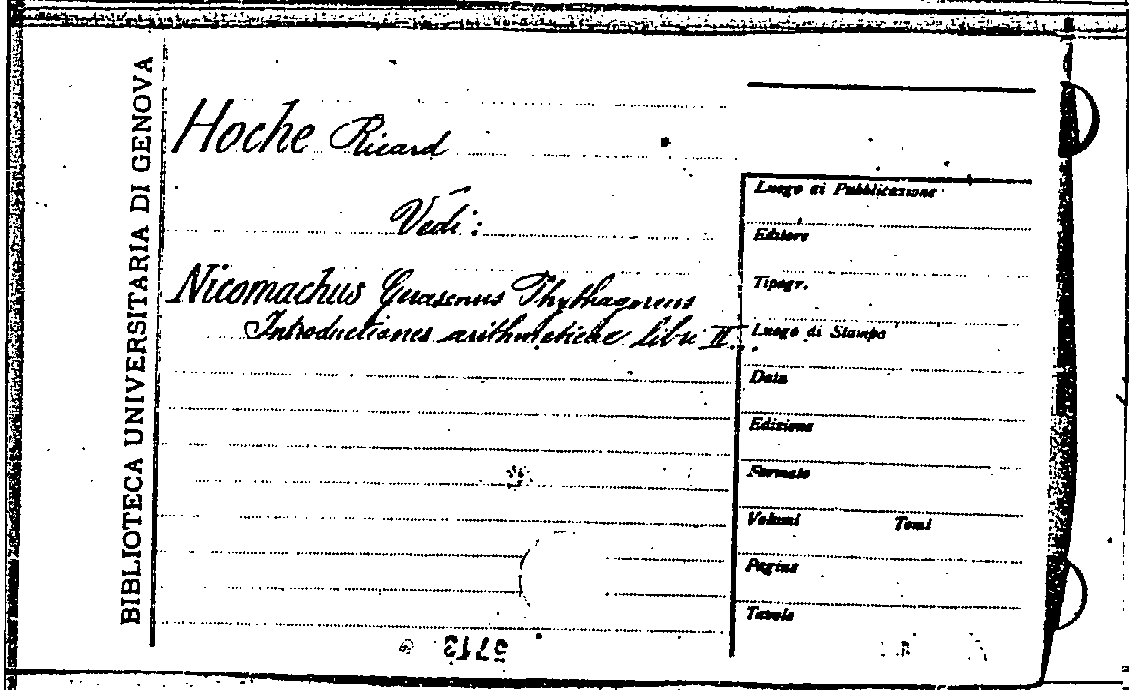 BIBLIOTECA UNIVERSITARIA DI GENOVA
Hoche Ricard
Vedi:
Nicomachus Gerasenus Phythagoreus
Introductiones arithmeticae libri II.
Luogo di Pubblicazione
Editore
Tipogr.
Luogo di Stampa
Data
Edizione
Formato
Volumi Tomi
Pagine
Tavole